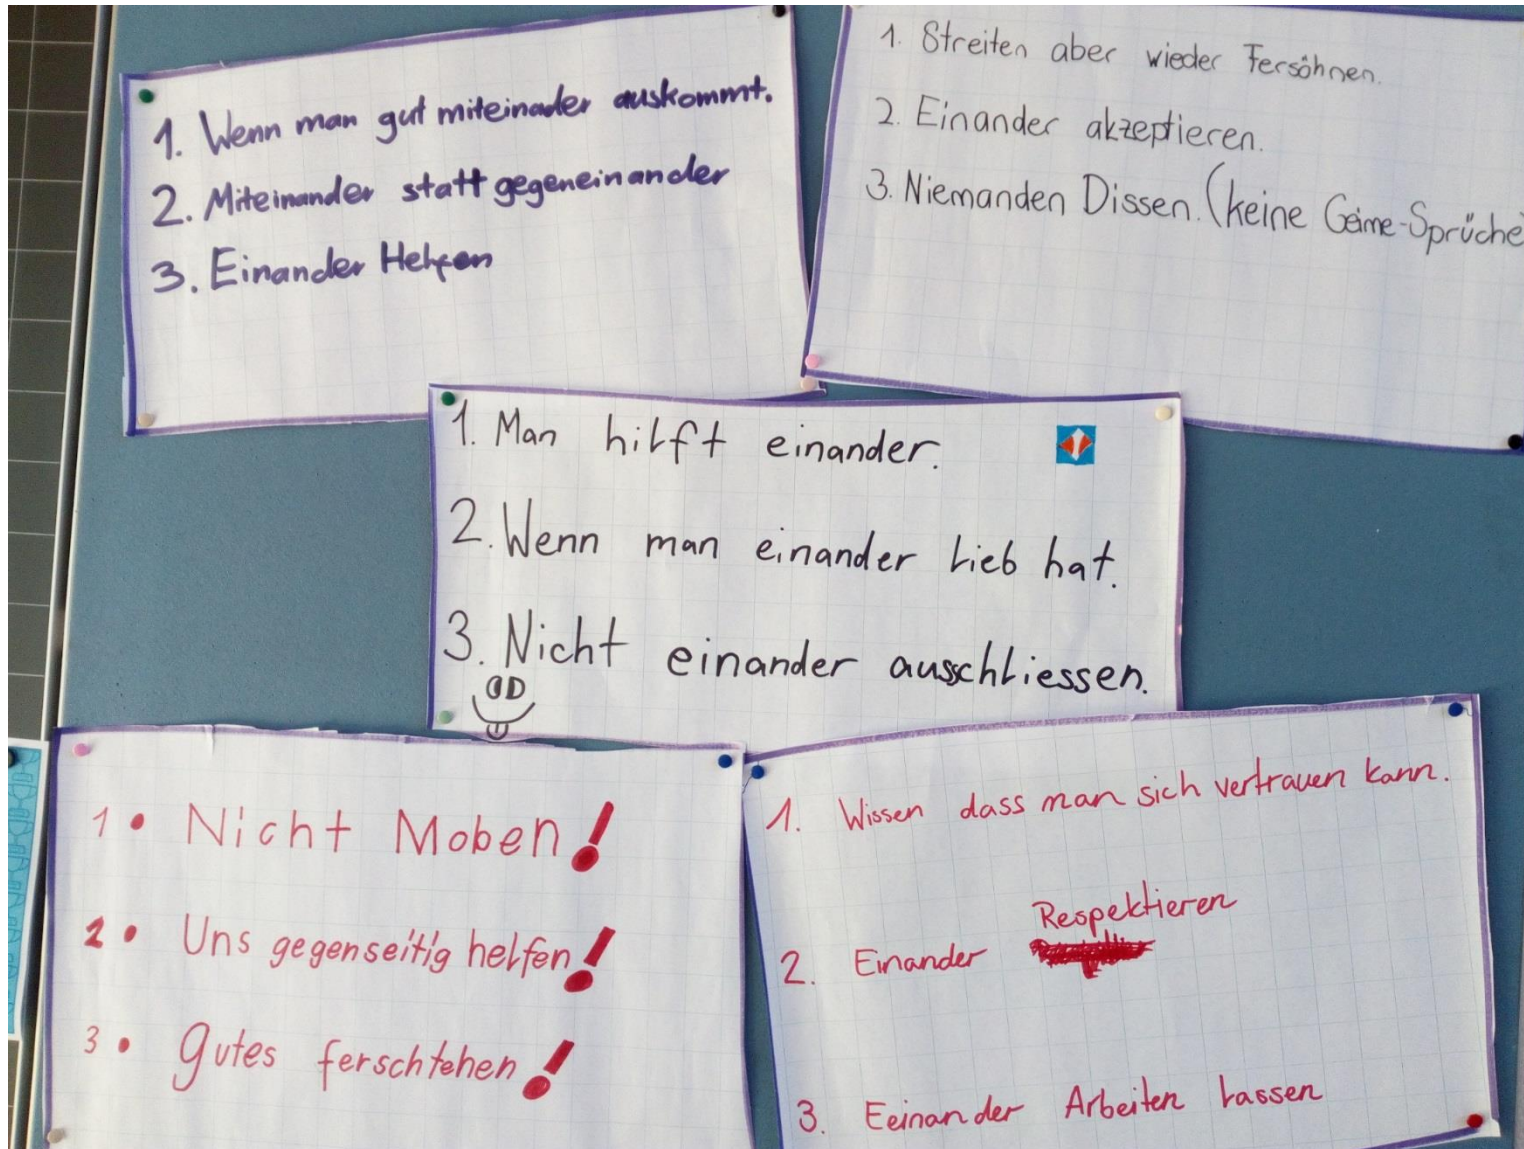 1. Wenn man gut miteinader auskommt.
2. Miteinander statt gegeneinander
3. Einander Helfen
1. Streiten aber wieder Fersöhnen.
2. Einander akzeptieren.
3. Niemanden Dissen. (keine Geime-Sprüche)
1. Man hilft einander.
2. Wenn man einander lieb hat.
3. Nicht einander ausschliessen.
1 • Nicht Moben!
2 • Uns gegenseitig helfen!
3 • gutes ferschtehen!
1. Wissen dass man sich vertrauen kann.
Respektieren
2. Einander
3. Eeinander Arbeiten lassen